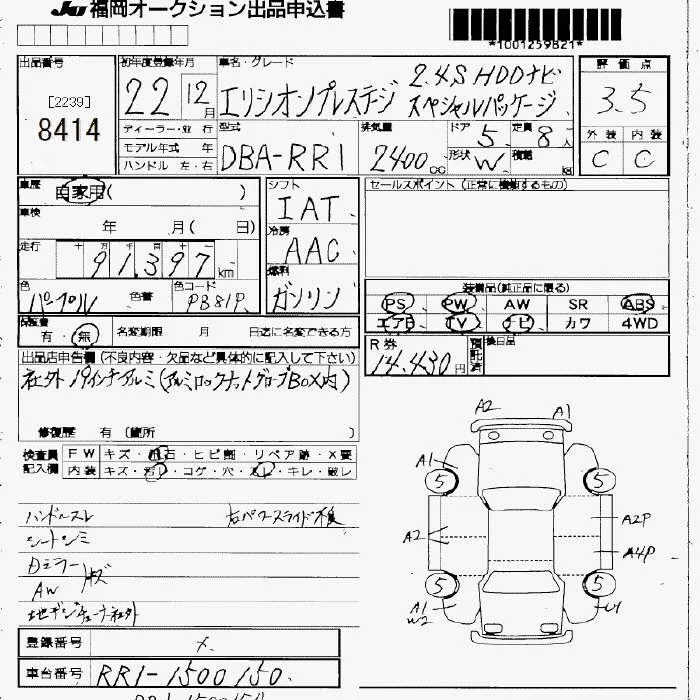 JU 福岡オークション出品申込書
*1001259821*
出品番号
[2239]
8414
初年度登録年月
22 12月
ディーラー・並行
モデル年式 年
ハンドル 左・右
車名・グレード
エリシオンプレステージ 2.4S HDDナビ
スペシャルパッケージ
評価点
3.5
外装 内装
C C
型式
DBA-RR1
排気量
2400cc
ドア 5 定員 8人
形状 W 積載 kg
車歴
自家用( )
車検
年 月( 日)
走行
十 万 千 百 十 一
91,397 km
色
パープル 色替
色コード
PB81P
シフト
IAT
冷房
AAC
燃料
ガソリン
セールスポイント (正常に機動するもの)
装備品(純正品に限る)
PS PW AW SR ABS
エアB TV ナビ カワ 4WD
保証書
有・無 名変期限 月 日迄に名変できる方
R券
14,430円
預託済
検日品
出品店申告欄 (不良内容・欠品など具体的に記入して下さい)
社外19インチアルミ(アルミロックナットグローブBOX内)
修復歴 有 (箇所 )
検査員記入欄
FW キズ・飛石・ヒビ割・リペア跡・X要
内装 キズ・汚レ・コゲ・穴・スレ・キレ・破レ
ハンドルスレ 右パワースライド不良
シートシミ
Dミラー
AW キズ
地デジチューナー社外
A2 A1
A1
5 5
A2
A2P
A4P
5 5
A1
W2
U1
登録番号 メ.
車台番号 RR1-1500150.